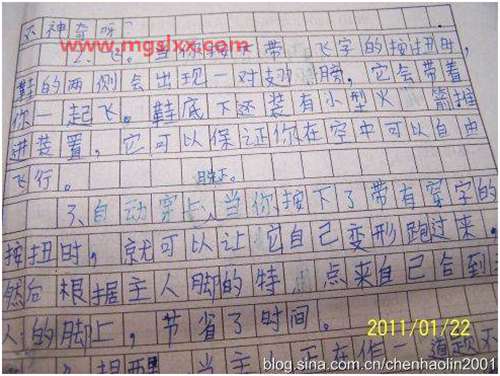 不神奇呀?
www.mgslxx.com
2、飞。当你按下带飞字的按扭时,
鞋的两侧会出现一对翅膀,它会带着
你一起飞。鞋底下还装有小型火箭推
进装置,它可以保证你在空中可以自由
飞行。
3、自动穿上,当你按下了带有穿字的
按扭时,就可以让它自己变形跑过来,
然后根据主人脚的特点来自己合到
人的脚上,节省了时间。
2011/01/22
当主 正在作一道题不
blog.sina.com.cn/chenhaolin2001